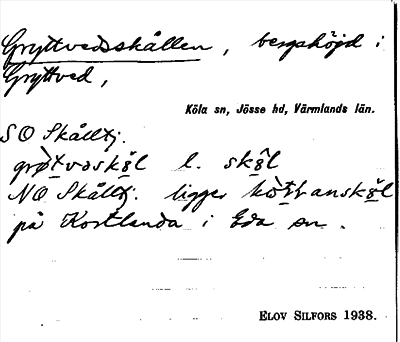 Gryttvedsskållen, bergshöjd i
Gryttved,
Köla sn, Jösse hd, Värmlands län.
SO Skålltj.
grøtvəskål l. skål
NO Skålltj. ligger
på Kortlanda i Eda sn.
ELOV SILFORS 1938.